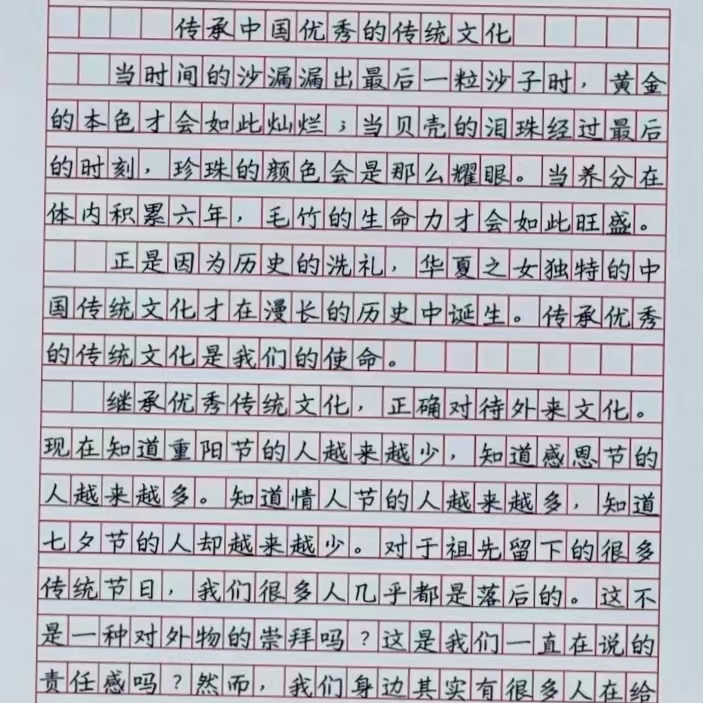 传承中国优秀的传统文化
当时间的沙漏漏出最后一粒沙子时，黄金
的本色才会如此灿烂；当贝壳的泪珠经过最后
的时刻，珍珠的颜色会是那么耀眼。当养分在
体内积累六年，毛竹的生命力才会如此旺盛。
正是因为历史的洗礼，华夏之女独特的中
国传统文化才在漫长的历史中诞生。传承优秀
的传统文化是我们的使命。
继承优秀传统文化，正确对待外来文化。
现在知道重阳节的人越来越少，知道感恩节的
人越来越多。知道情人节的人越来越多，知道
七夕节的人却越来越少。对于祖先留下的很多
传统节日，我们很多人几乎都是落后的。这不
是一种对外物的崇拜吗？这是我们一直在说的
责任感吗？然而，我们身边其实有很多人在给